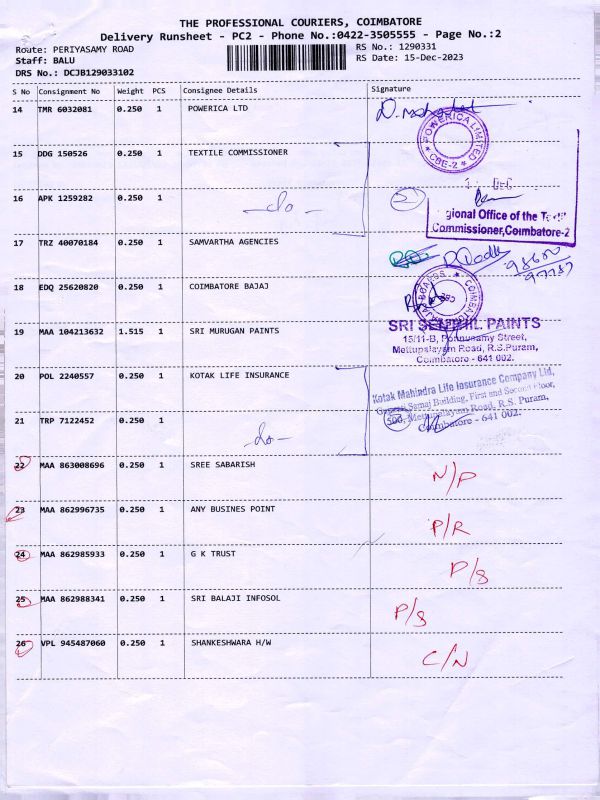 THE PROFESSIONAL COURIERS, COIMBATORE
Delivery Runsheet - PC2 - Phone No.:0422-3505555 - Page No.:2
Route: PERIYASAMY ROAD RS No.: 1290331
Staff: BALU RS Date: 15-Dec-2023
DRS No.: DCJB129033102
S No Consignment No Weight PCS Consignee Details Signature
14 TMR 6032081 0.250 1 POWERICA LTD
POWERICA LIMITED
CBE-2
15 DDG 150526 0.250 1 TEXTILE COMMISSIONER
DEC
16 APK 1259282 0.250 1 -do- 2
gional Office of the
Commissioner, Coimbatore-2
17 TRZ 40070184 0.250 1 SAMVARTHA AGENCIES
18 EDQ 25620820 0.250 1 COIMBATORE BAJAJ
19 MAA 104213632 1.515 1 SRI MURUGAN PAINTS
SRI SENTHIL PAINTS
15/11-B, Ponnusamy Street,
Mettupalayam Road, R.S.Puram,
Coimbatore - 641 002.
20 POL 2240557 0.250 1 KOTAK LIFE INSURANCE
Kotak Mahindra Life Insurance Company Ltd,
Samaj Building, First and Second Floor,
500, Mettupalayam Road, R.S. Puram,
Coimbatore - 641 002.
21 TRP 7122452 0.250 1 -do-
22 MAA 863008696 0.250 1 SREE SABARISH N/P
23 MAA 862996735 0.250 1 ANY BUSINES POINT P/R
24 MAA 862985933 0.250 1 G K TRUST P/S
25 MAA 862988341 0.250 1 SRI BALAJI INFOSOL P/S
26 VPL 945487060 0.250 1 SHANKESHWARA H/W C/N